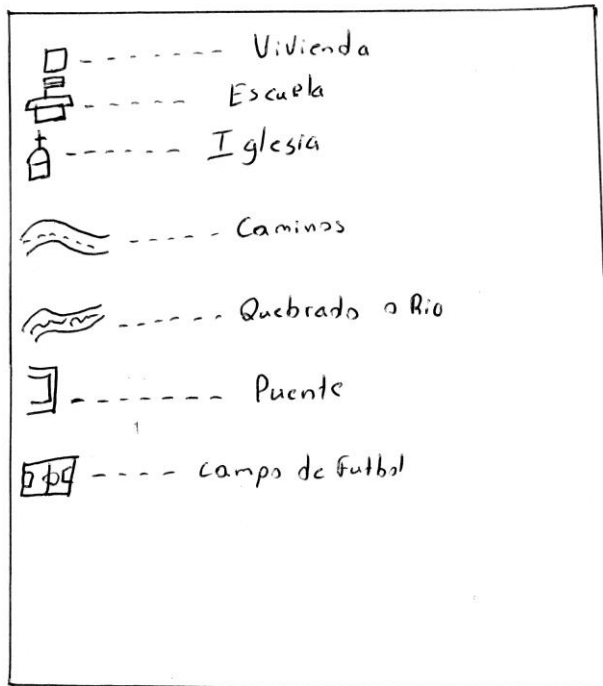 Vivienda
Escuela
Iglesia
Caminos
Quebrado o Rio
Puente
1
campo de Futbol